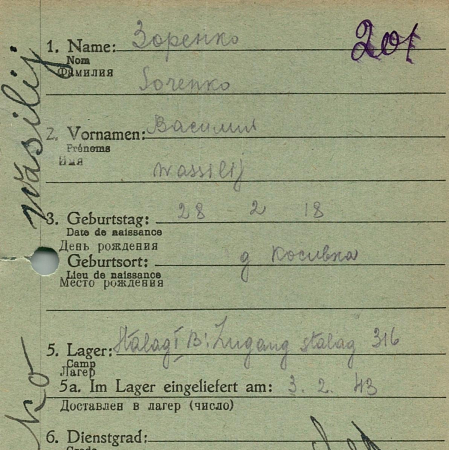 201
1. Name: Зоренко
Nom
Фамилия
Sorenko
2. Vornamen: Василий
Prénoms
Имя
Wassilij
3. Geburtstag: 28 - 2 18
Date de naissance
День рождения
Geburtsort: д Косивка
Lieu de naissance
Место рождения
5. Lager: Stalag I B: Zugang stalag 316
Camp
Лагерь
5a. Im Lager eingeliefert am: 3. 2. 43
Доставлен в лагерь (число)
6. Dienstgrad:
Grade
Wasilij
ko